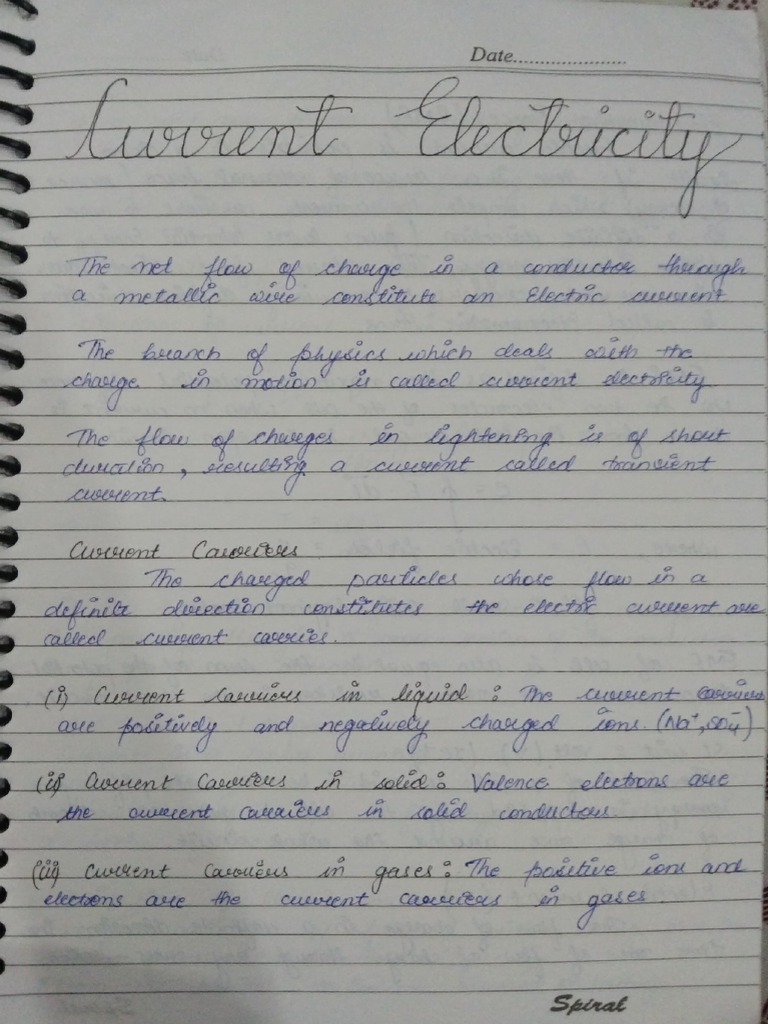 Date....................
Current Electricity
The net flow of charge in a conductor through
a metallic wire constitute an Electric current
The branch of physics which deals with the
charge in motion is called current electricity
The flow of charges in lightening is of short
duration, resulting a current called transient
current.
Current Carriers
The charged particles whose flow in a
definite direction constitutes the electric current are
called current carries.
(i) Current Carriers in liquid : The current carriers
are positively and negatively charged ions. (Na⁺, SO₄⁻)
(ii) Current Carriers in solid : Valence electrons are
the current carriers in solid conductors.
(iii) Current Carriers in gases : The positive ions and
electrons are the current carriers in gases.
Spiral